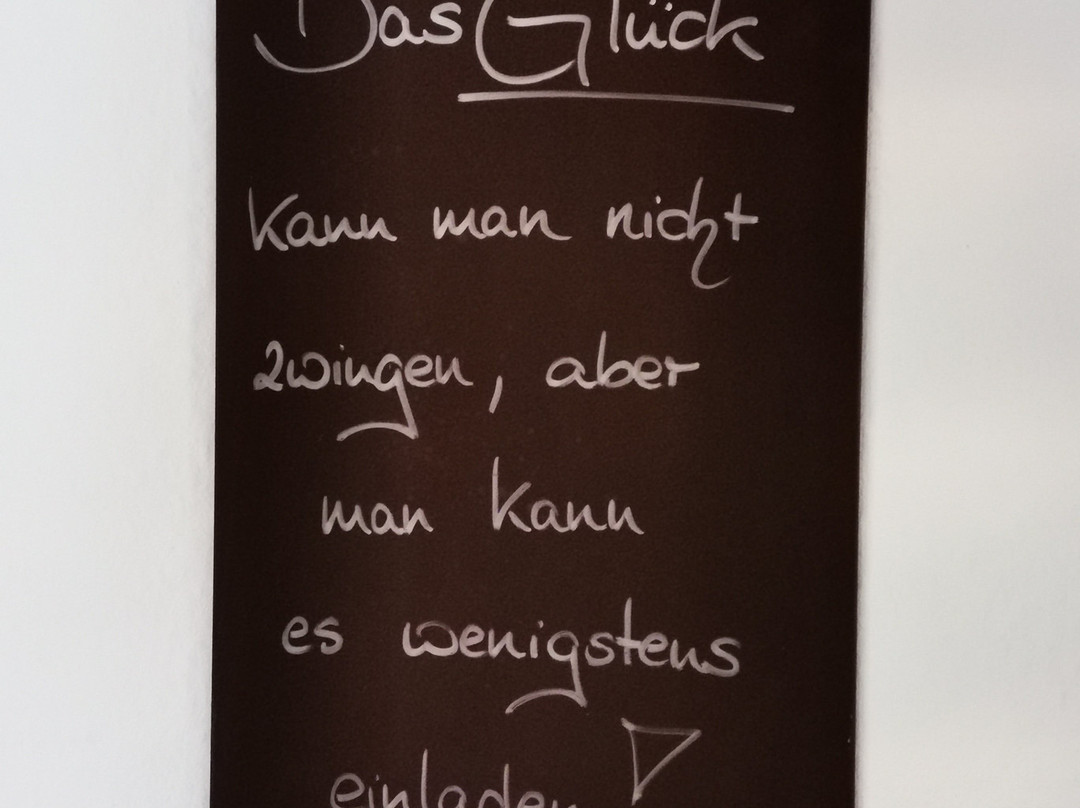 Das Glück
kann man nicht
zwingen, aber
man kann
es wenigstens
einladen!